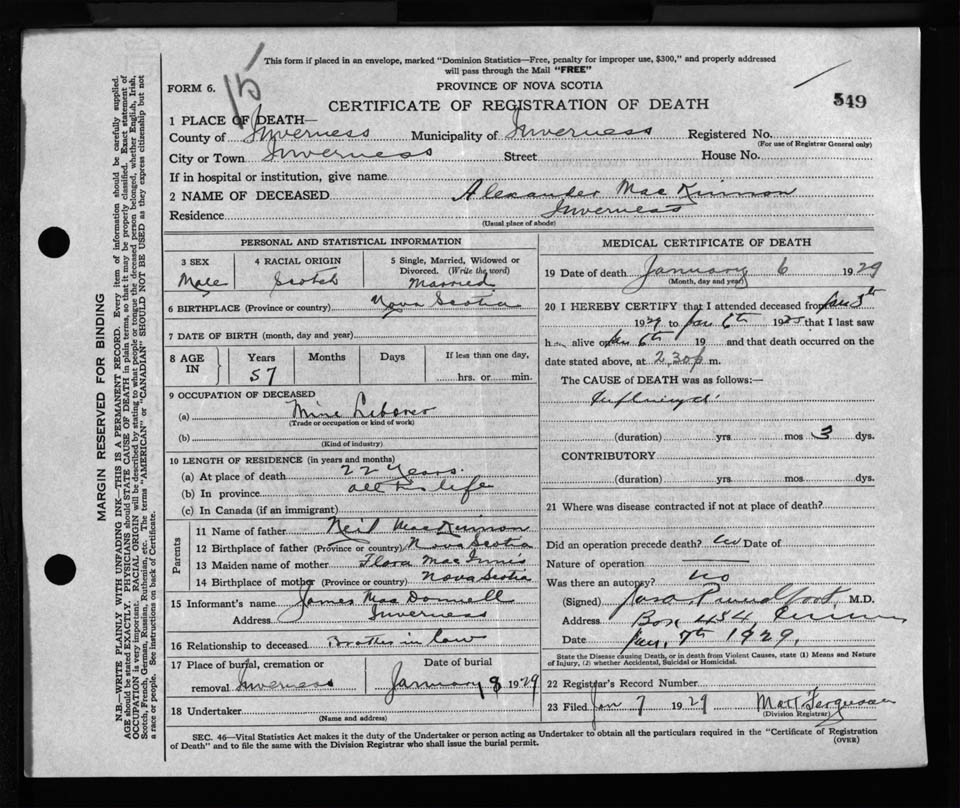 This form if placed in an envelope, marked "Dominion Statistics—Free, penalty for improper use, $300," and properly addressed
will pass through the Mail "FREE"
15
FORM 6.
PROVINCE OF NOVA SCOTIA
CERTIFICATE OF REGISTRATION OF DEATH
549
1 PLACE OF DEATH—
County of Inverness Municipality of Inverness Registered No.
(For use of Registrar General only)
City or Town Inverness Street House No.
If in hospital or institution, give name
2 NAME OF DECEASED Alexander MacKinnon
Residence Inverness
(Usual place of abode)
PERSONAL AND STATISTICAL INFORMATION
3 SEX 4 RACIAL ORIGIN 5 Single, Married, Widowed or
Divorced. (Write the word)
Male Scotch Married
6 BIRTHPLACE (Province or country) Nova Scotia
7 DATE OF BIRTH (month, day and year)
8 AGE IN Years Months Days If less than one day,
57 hrs. or min.
9 OCCUPATION OF DECEASED
(a) Mine Laborer
(Trade or occupation or kind of work)
(b)
(Kind of industry)
10 LENGTH OF RESIDENCE (in years and months)
(a) At place of death 22 years.
(b) In province all his life
(c) In Canada (if an immigrant)
Parents
11 Name of father Neil MacKinnon
12 Birthplace of father (Province or country) Nova Scotia
13 Maiden name of mother Flora MacInnis
14 Birthplace of mother (Province or country) Nova Scotia
15 Informant's name James MacDonnell
Address Inverness
16 Relationship to deceased Brother in law
17 Place of burial, cremation or Date of burial
removal Inverness January 8 1929
18 Undertaker
(Name and address)
MEDICAL CERTIFICATE OF DEATH
19 Date of death January 6 1929
(Month, day and year)
20 I HEREBY CERTIFY that I attended deceased from Jan 3th
1929 to Jan 6th 19 that I last saw
h alive on Jan 6th 19 and that death occurred on the
date stated above, at 2.30 p m.
The CAUSE of DEATH was as follows:—
(duration) yrs mos 3 dys.
CONTRIBUTORY
(duration) yrs. mos. dys.
21 Where was disease contracted if not at place of death?
Did an operation precede death? Date of
Nature of operation
Was there an autopsy? no
(Signed) Proudfoot, M.D.
Address Box 454,
Date Jan. 7th 1929.
State the Disease causing Death, or in death from Violent Causes, state (1) Means and Nature
of Injury, (2) whether Accidental, Suicidal or Homicidal.
22 Registrar's Record Number
23 Filed Jan 7 1929 Matt Ferguson
(Division Registrar)
SEC. 46—Vital Statistics Act makes it the duty of the Undertaker or person acting as Undertaker to obtain all the particulars required in the "Certificate of Registration
of Death" and to file the same with the Division Registrar who shall issue the burial permit.
(OVER)
MARGIN RESERVED FOR BINDING
N.B.—WRITE PLAINLY WITH UNFADING INK—THIS IS A PERMANENT RECORD. Every item of information should be carefully supplied.
AGE should be stated EXACTLY. PHYSICIANS should STATE CAUSE OF DEATH in plain terms, so that it may be properly classified. Exact statement of
OCCUPATION is very important. RACIAL ORIGIN will be described by stating to what people or tongue the deceased person belonged, whether English, Irish,
Scotch, French, German, Russian, Ruthenian, etc. The terms "AMERICAN" or "CANADIAN" SHOULD NOT BE USED as they express citizenship but not
a race or people. See instructions on back of Certificate.